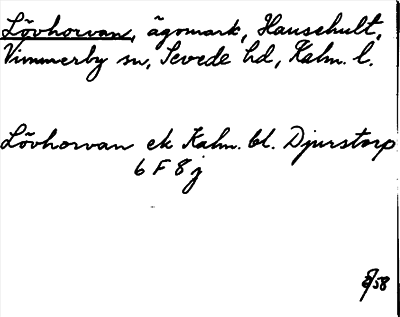 Lövhorvan, ägomark, Hausehult,
Vimmerby sn, Sevede hd, Kalm. l.
Lövhorvan ek Kalm. bl. Djurstorp
6 F 8 j
58